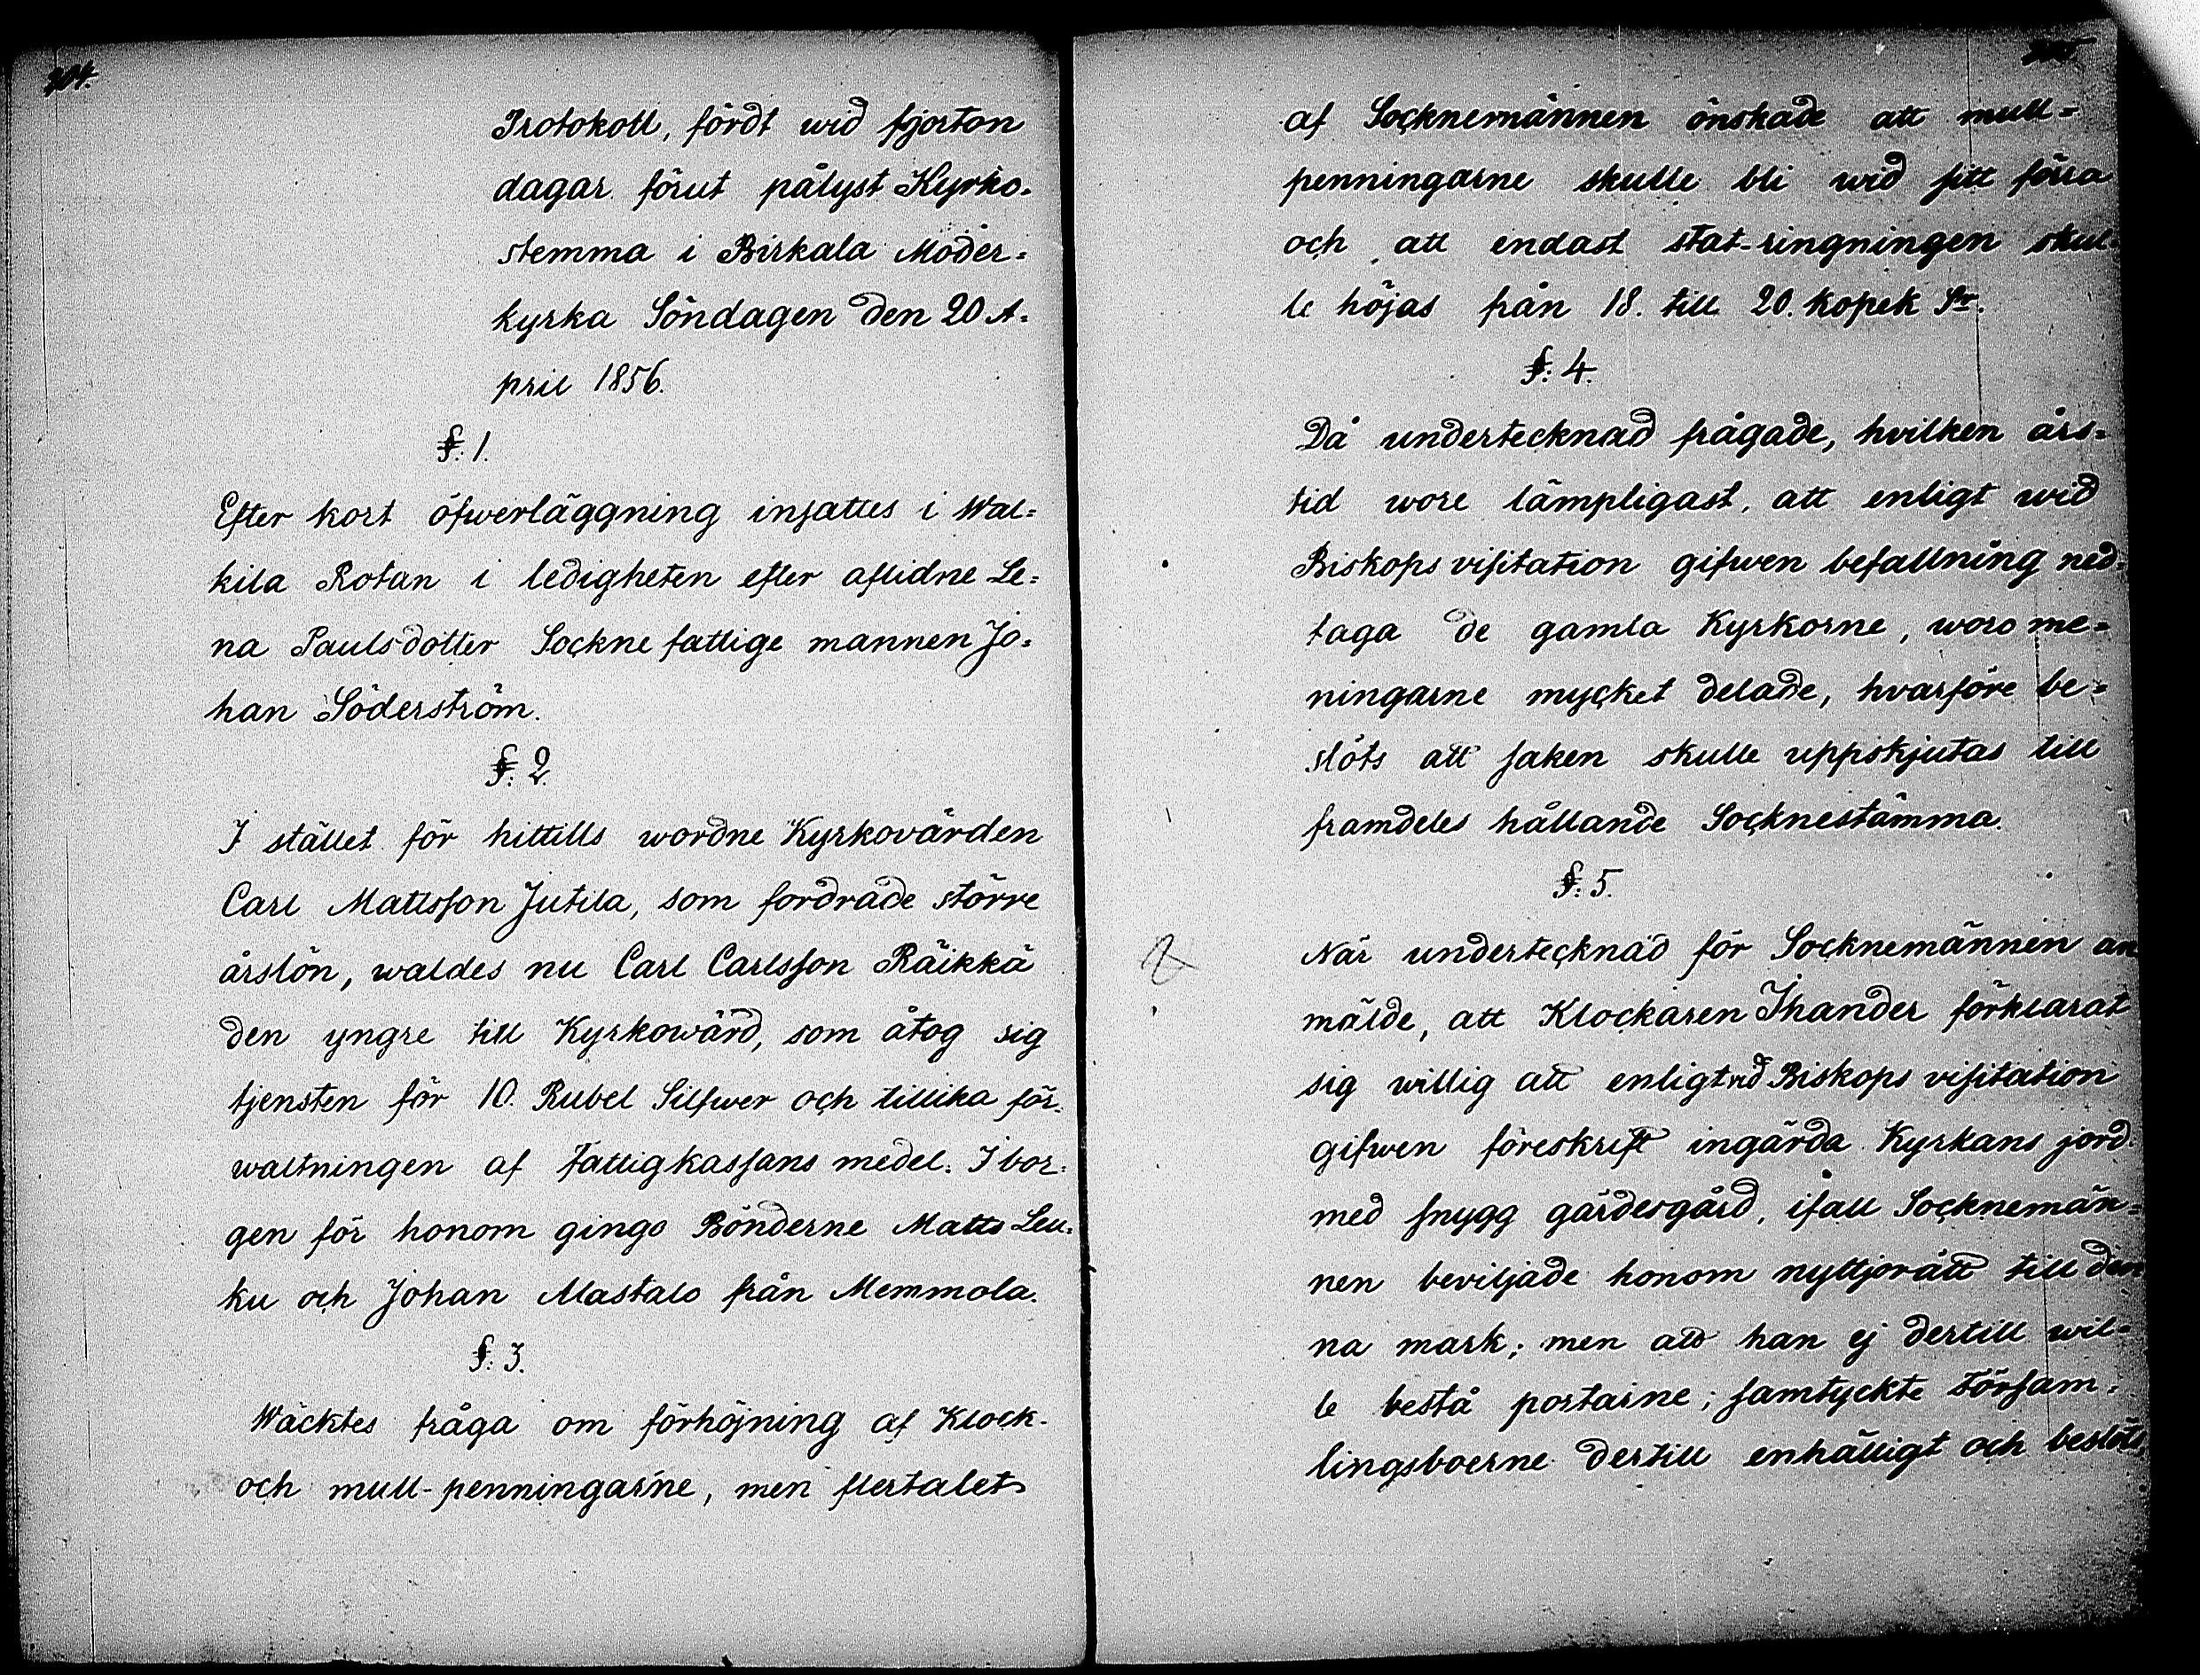 704.
Protokoll, fördt wid fjorton
dagar förut pålyst Kyrko=
stemma i Birkala Moder=
kyrka Söndagen den 20 A=
pril 1856.
§: 1.
Efter kort öfwerläggning insattes i Wal=
kila Rotan i ledigheten efter aflidne Le=
na Paulsdotter Sockne fattige mannen Jo=
han Söderström.
§: 2.
I stället för hittills wordne Kyrkovärden
Carl Mattsson Jutila, som fordrade större
årslön, waldes nu Carl Carlsson Räikkä
den yngre till Kyrkowärd, som åtog sig
tjensten för 10. Rubel Silfwer och tillika för=
waltningen af Fattigkassans medel. I bor=
gen för honom gingo Bönderne Matts Leu=
ku och Johan Mastalo från Memmola.
§: 3.
Wäcktes fråga om förhöjning af Klock-
och mull-penningarne, men flertalet
705.
af Socknemännen önskade att mull=
penningarne skulle bli wid sitt förra
och att endast stat-ringningen skul=
le höjas från 18. till 20. kopek Sr.
§: 4.
Då undertecknad frågade, hvilken års=
tid wore lämpligast, att enligt wid
Biskops visitation gifwen befallning ned=
taga de gamla Kyrkorne, woro me=
ningarne mycket delade, hvarföre be=
slöts att saken skulle uppskjutas till
framdeles hållande Socknestämma.
§: 5.
När undertecknad för Socknemännen an
mälde, att Klockaren Ihander förklarat
sig willig att enligt vid Biskops visitation
gifwen föreskrift ingärda Kyrkans jord
med snygg gärdesgård, ifall Socknemän=
nen beviljade honom nyttjorätt till den
na mark; men att han ej dertill wil=
le bestå portarne; samtyckte Försam=
lingsboerne dertill enhälligt och beslöts